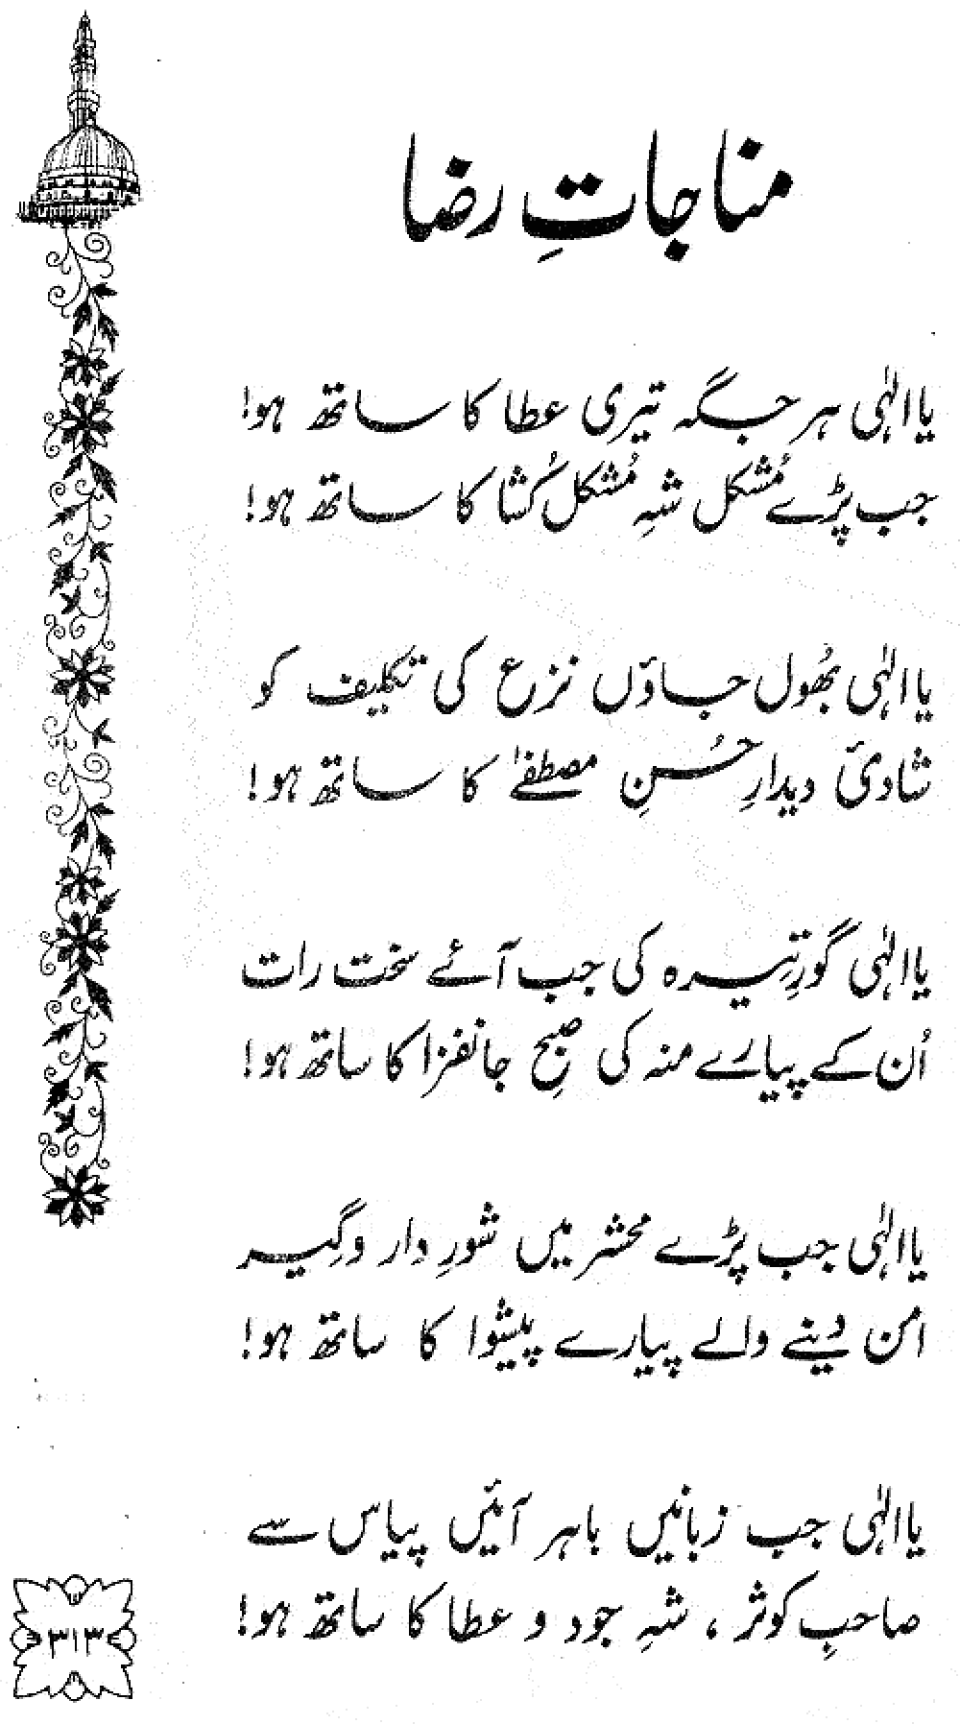 مناجاتِ رضا
یا الٰہی ہر جگہ تیری عطا کا ساتھ ہو!
جب پڑے مُشکل شہِ مُشکل کُشا کا ساتھ ہو!
یا الٰہی بھُول جاؤں نزع کی تکلیف کو
شادیٔ دیدارِ حُسنِ مصطفےٰ کا ساتھ ہو!
یا الٰہی گورِ تیرہ کی جب آئے سخت رات
اُن کے پیارے منہ کی صبحِ جانفزا کا ساتھ ہو!
یا الٰہی جب پڑے محشر میں شورِ دار و گیر
امن دینے والے پیارے پیشوا کا ساتھ ہو!
یا الٰہی جب زبانیں باہر آئیں پیاس سے
صاحبِ کوثر، شہِ جود و عطا کا ساتھ ہو!
۳۱۳